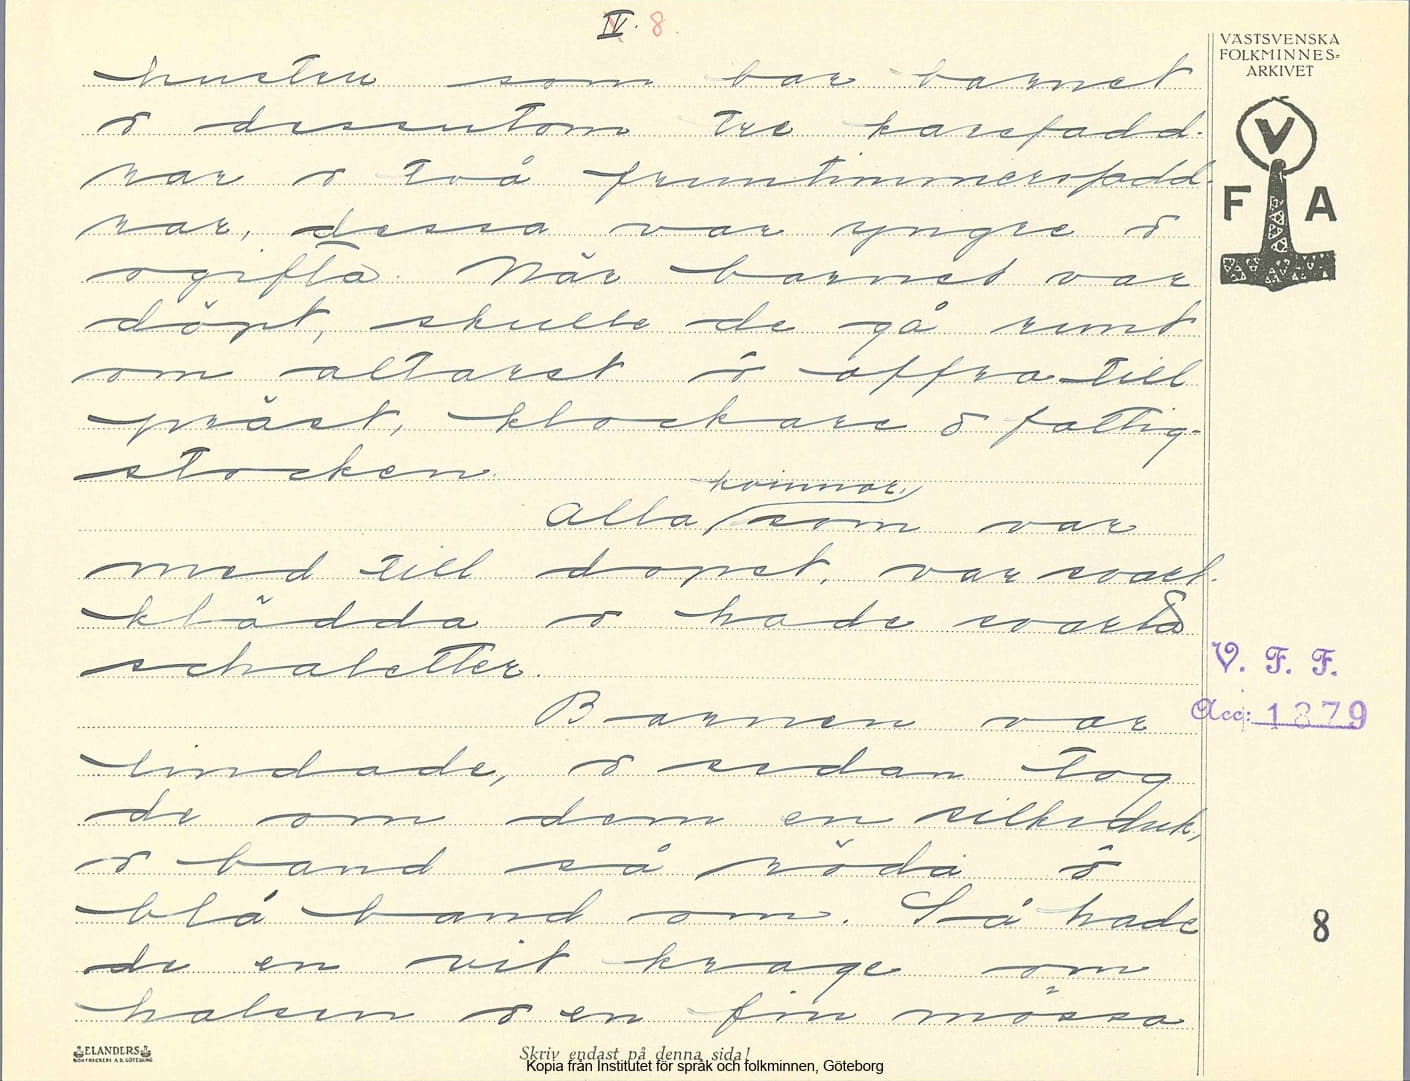 IV. 8.
VÄSTSVENSKA
FOLKMINNES-
ARKIVET
V
F A
hustru som bar barnet
o dessutom tre karsfadd-
rar o två fruntimmersfadd-
rar, dessa var yngre o
ogifta. När barnet var
döpt, skulle de gå runt
om altaret o offra till
präst, klockare o fattig-
stocken.
kvinnor
Alla som var
med till dopet, var svart-
klädda o hade svarta
schaletter.
Barnen var
lindade, o sedan tog
de om dem en silkeduk,
o band så röda o
blå band om. Så hade
de en vit krage om
halsen o en fin mössa
V. F. F.
Acc: 1879
8
ELANDERS
BOKTRYCKERI A.B. GÖTEBORG
Skriv endast på denna sida!
Kopia från Institutet för språk och folkminnen, Göteborg